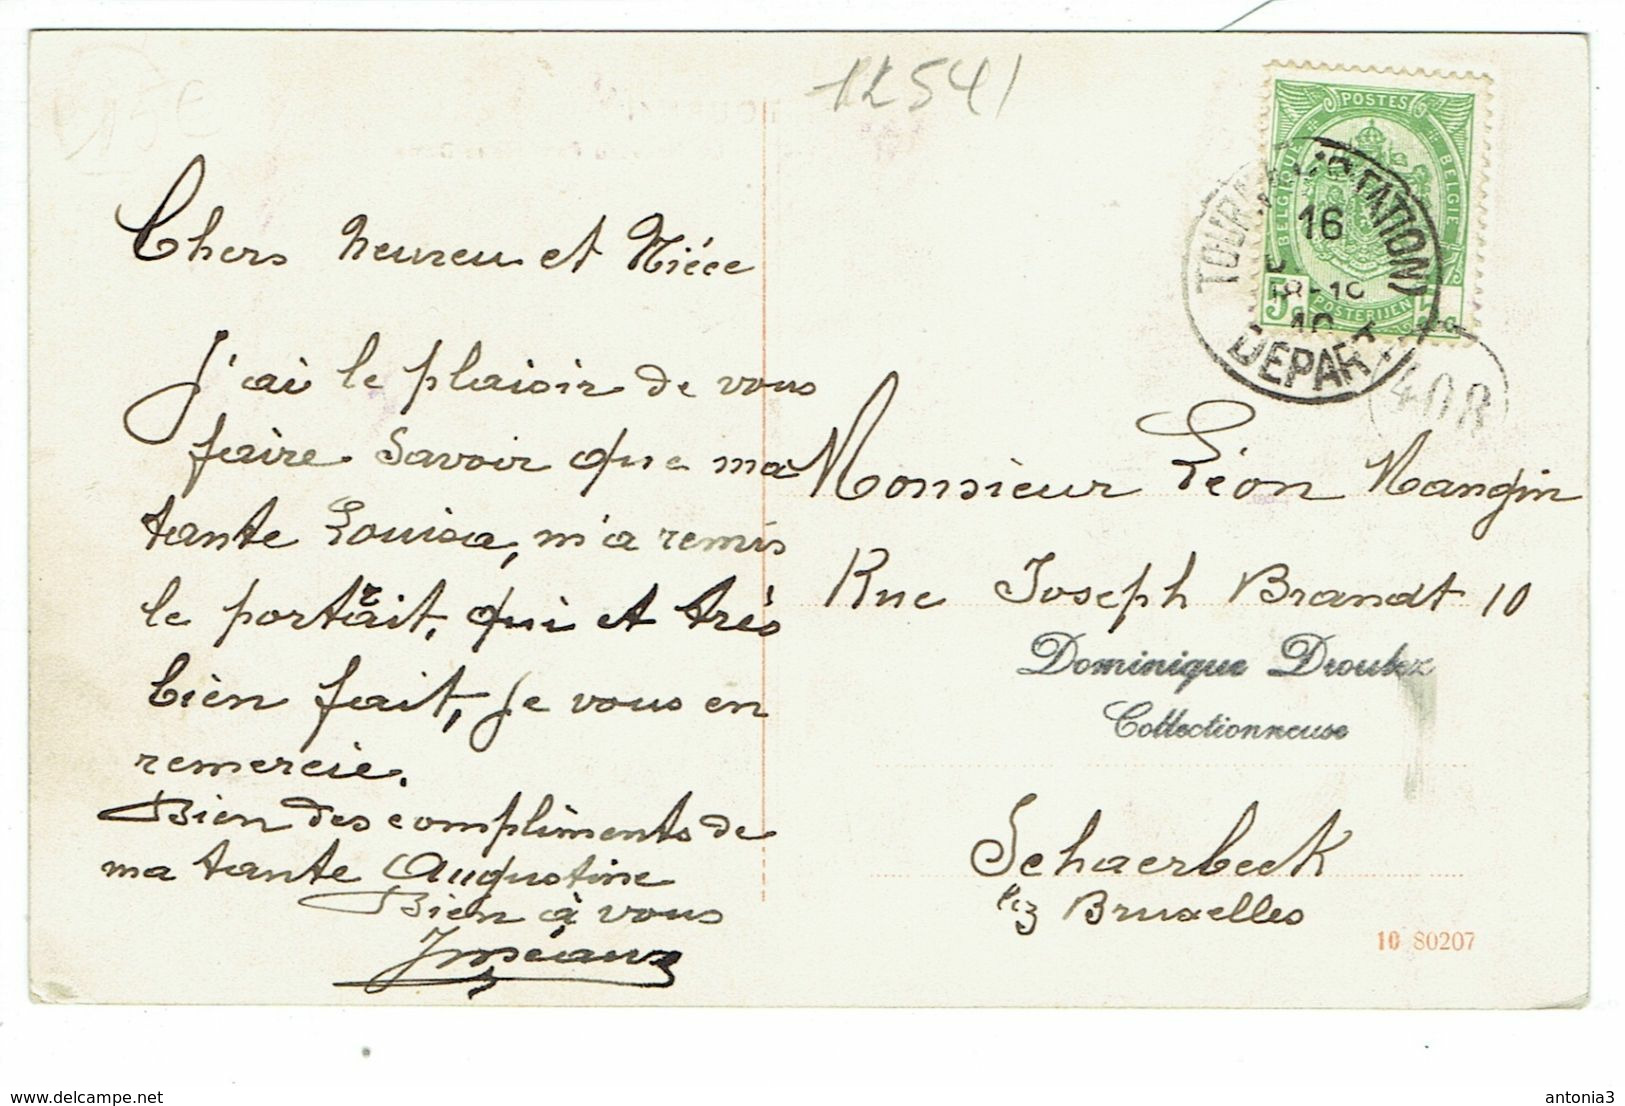 12541
Chers Neureu et Nièce
J'ai le plaisir de vous
faire savoir que ma
tante Louisa, m'a remis
le portrait, qui et très
bien fait, je vous en
remercie.
Bien des compliments de
ma tante Augustine
Bien à vous
POSTES
BELGIQUE
BELGIE
POSTERIJEN
5
16
DEPART
408
Monsieur Léon Mangin
Rue Joseph Brandt 10
Dominique Droulez
Collectionneuse
Schaerbeek
lez Bruxelles
10 80207
www.delcampe.net
antonia3